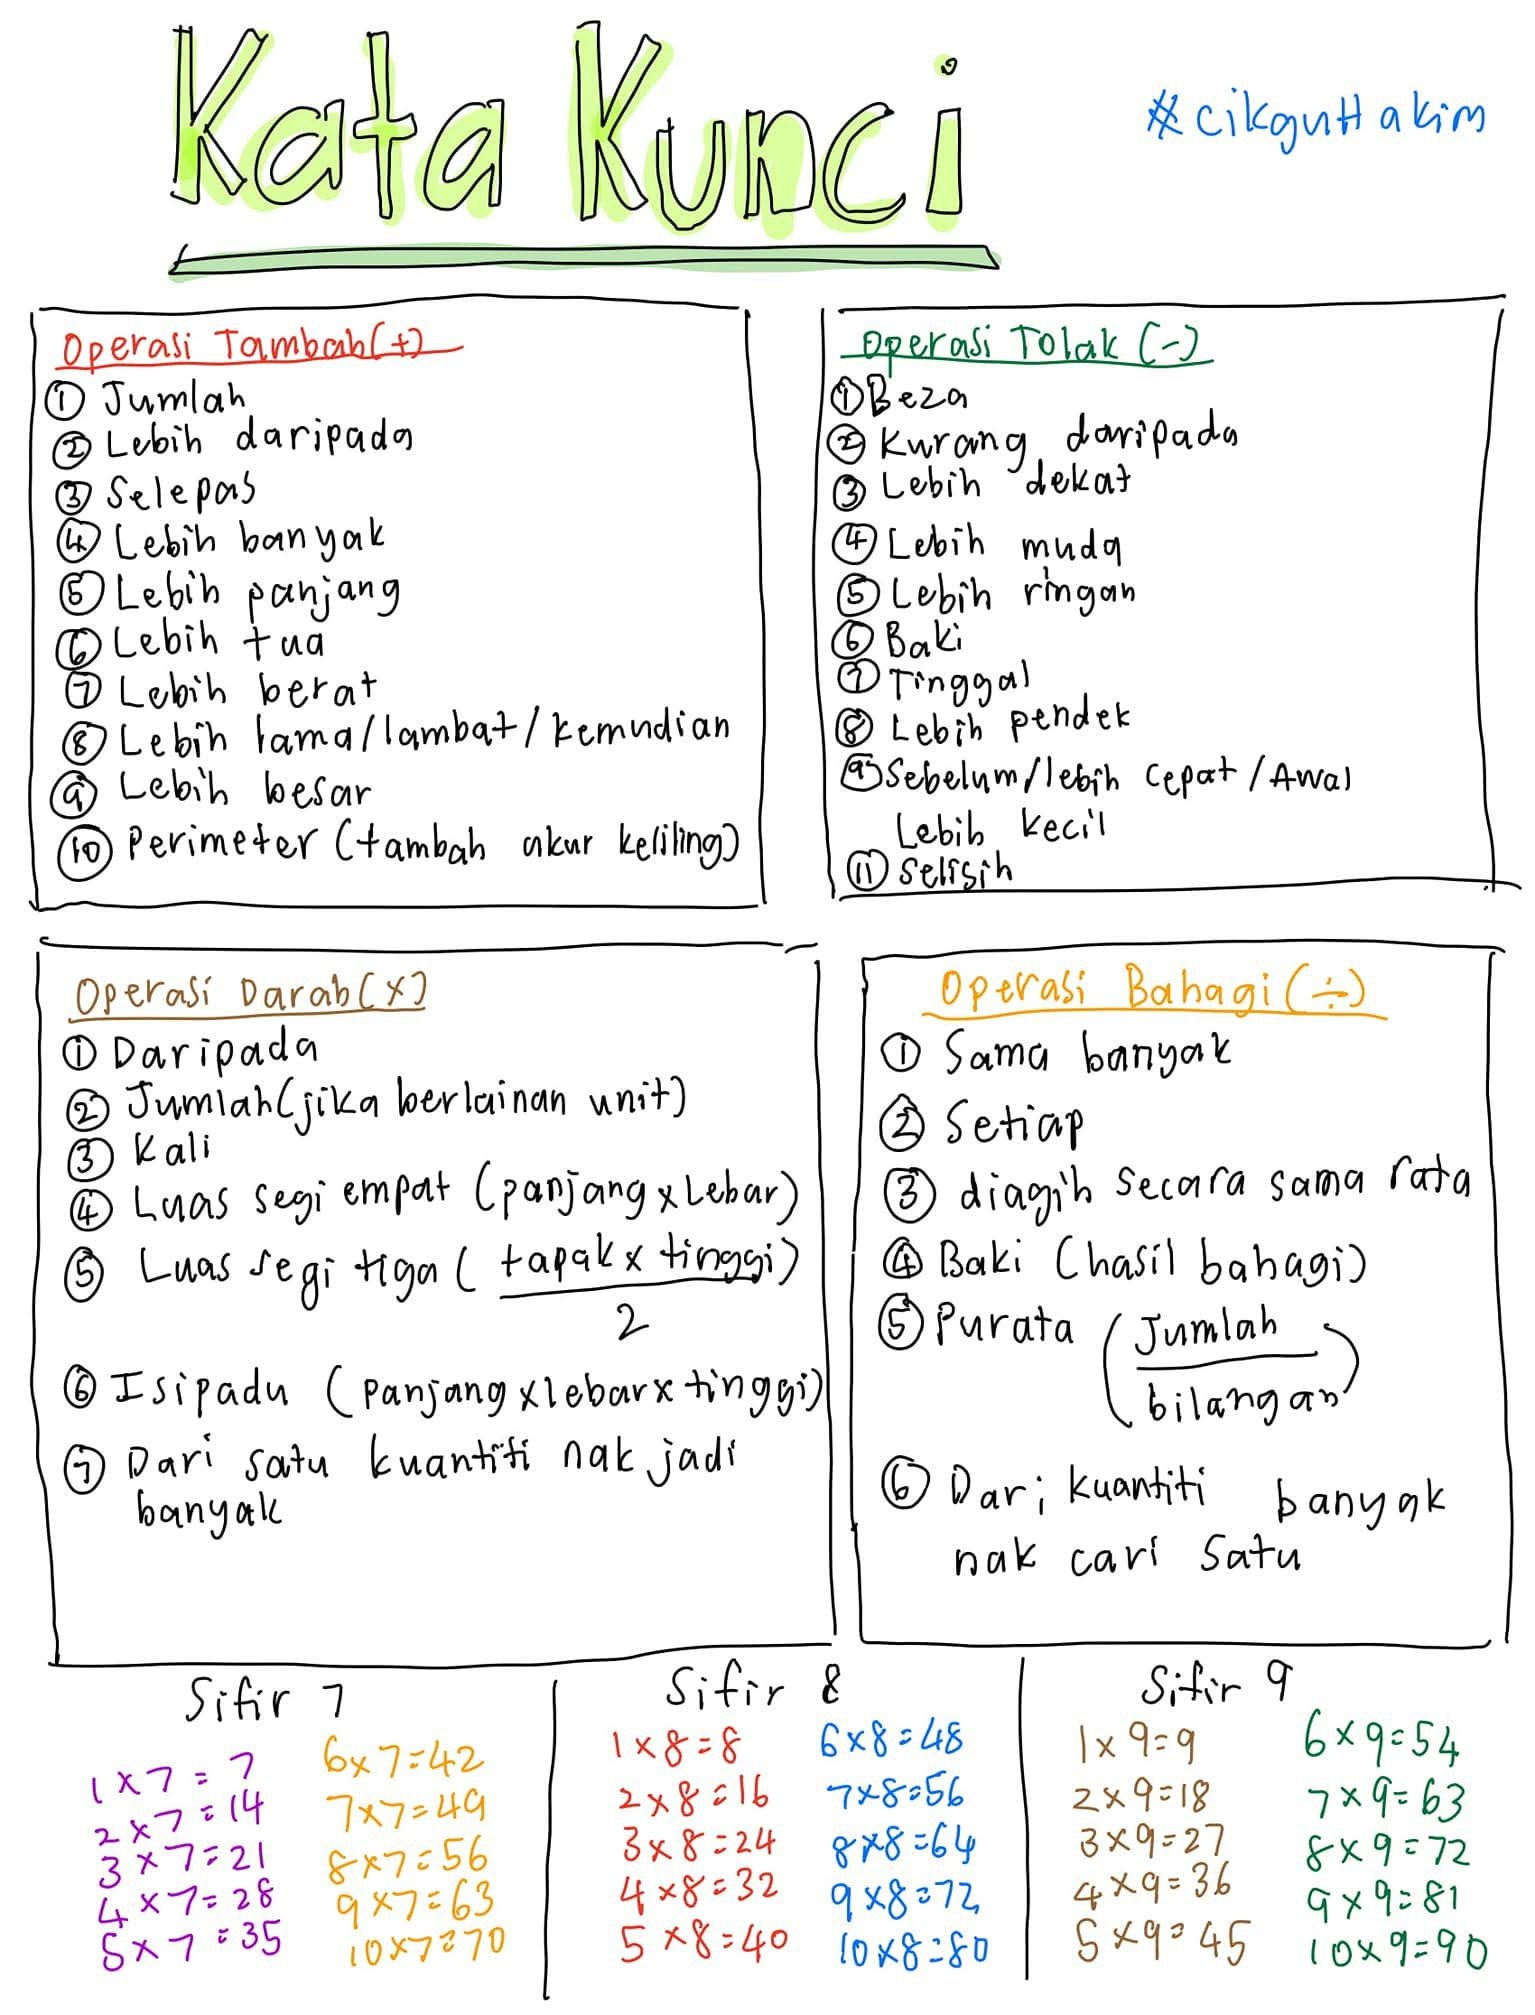 Kata Kunci
#cikguHakim
Operasi Tambah(+)
① Jumlah
② Lebih daripada
③ Selepas
④ Lebih banyak
⑤ Lebih panjang
⑥ Lebih tua
⑦ Lebih berat
⑧ Lebih lama/lambat/kemudian
⑨ Lebih besar
⑩ Perimeter (tambah ukur keliling)
Operasi Tolak (-)
① Beza
② Kurang daripada
③ Lebih dekat
④ Lebih muda
⑤ Lebih ringan
⑥ Baki
⑦ Tinggal
⑧ Lebih pendek
⑨ Sebelum/lebih cepat/Awal
Lebih kecil
⑪ Selisih
Operasi Darab(×)
① Daripada
② Jumlah(jika berlainan unit)
③ Kali
④ Luas segi empat (panjang × Lebar)
⑤ Luas segi tiga (tapak × tinggi)
2
⑥ Isipadu (Panjang × lebar × tinggi)
⑦ Dari satu kuantiti nak jadi
banyak
Operasi Bahagi (÷)
① Sama banyak
② Setiap
③ diagih secara sama rata
④ Baki (hasil bahagi)
⑤ Purata (Jumlah
bilangan)
⑥ Dari kuantiti banyak
nak cari satu
Sifir 7
1×7=7
2×7=14
3×7=21
4×7=28
5×7=35
6×7=42
7×7=49
8×7=56
9×7=63
10×7=70
Sifir 8
1×8=8
2×8=16
3×8=24
4×8=32
5×8=40
6×8=48
7×8=56
8×8=64
9×8=72
10×8=80
Sifir 9
1×9=9
2×9=18
3×9=27
4×9=36
5×9=45
6×9=54
7×9=63
8×9=72
9×9=81
10×9=90